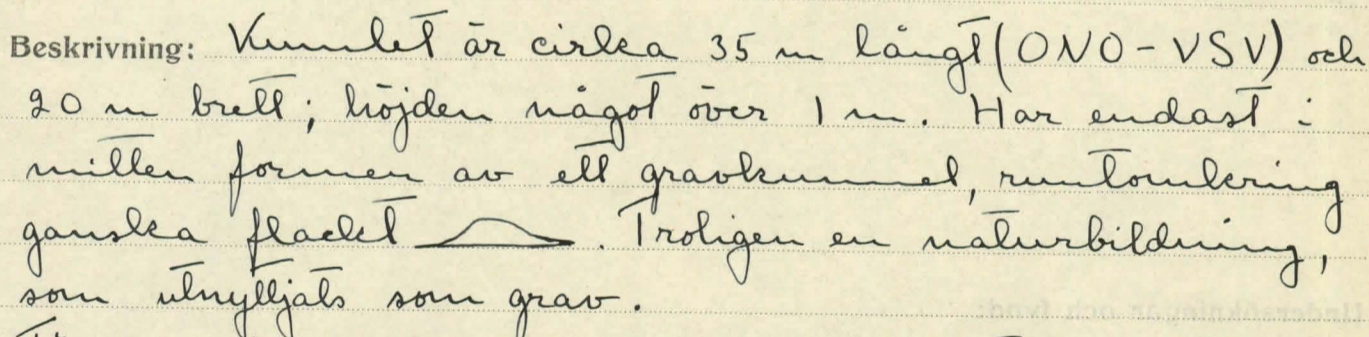 Beskrivning: Kumlet är cirka 35 m långt (ONO-VSV) och
20 m brett; höjden något över 1 m. Har endast i
mitten formen av ett gravkummel, runtomkring
ganska flackt. Troligen en naturbildning,
som utnyttjats som grav.